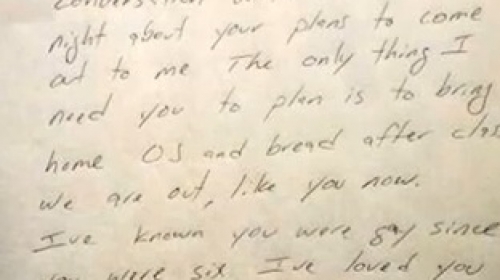 night about your plans to come
out to me The only thing I
need you to plan is to bring
home OJ and bread after clas
we are out, like you now.
Ive known you were gay since
you were six I've loved you